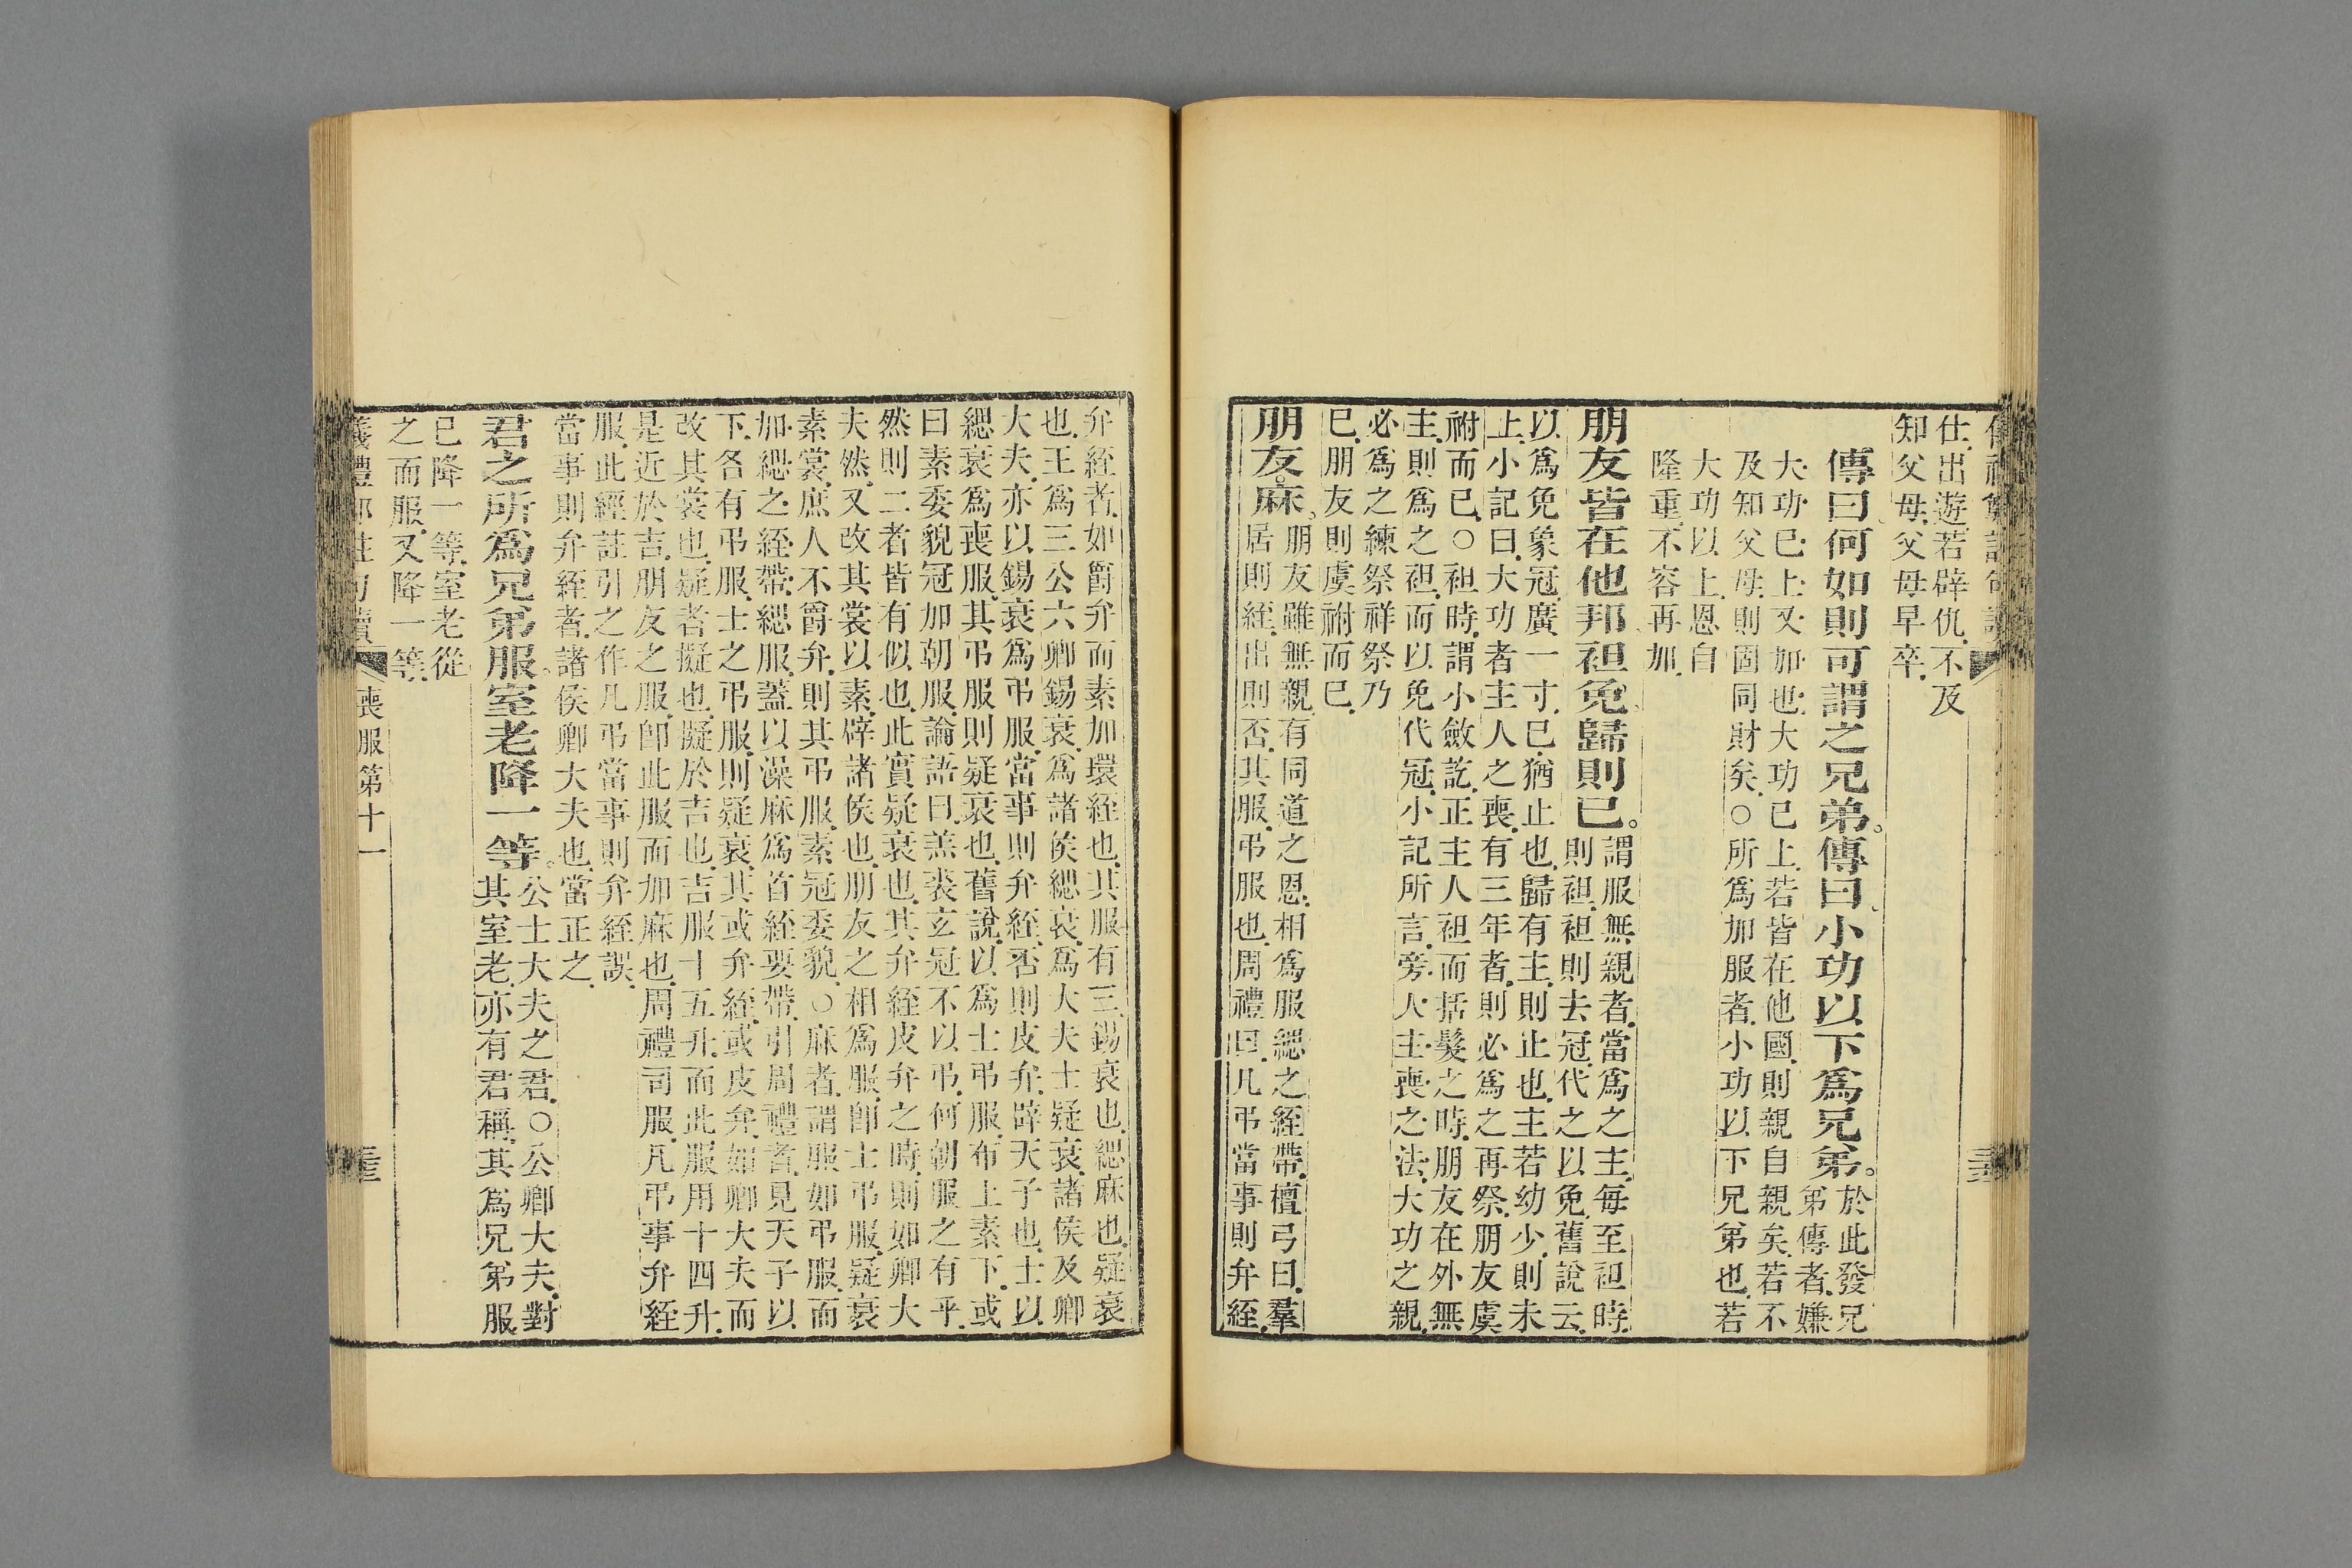 仕出遊若辟仇不及
知父母父母早卒
傳曰何如則可謂之兄弟。傳曰小功以下爲兄弟。於此發兄
弟傳者嫌
大功已上又加也大功已上若皆在他國則親自親矣若不
及知父母則固同財矣○所爲加服者小功以下兄弟也若
大功以上恩自
隆重不容再加
朋友皆在他邦袒免歸則已。謂服無親者當爲之主每至袒時
則袒袒則去冠代之以免舊說云
以爲免象冠廣一寸已猶止也歸有主則止也主若幼少則未
止小記曰大功者主人之喪有三年者則必爲之再祭朋友虞
祔而已○袒時謂小斂訖正主人袒而括髮之時朋友在外無
主則爲之袒而以免代冠小記所言旁人主喪之法大功之親
必爲之練祭祥祭乃
已朋友則虞祔而已
朋友麻。朋友雖無親有同道之恩相爲服緦之絰帶檀弓曰羣
居則絰出則否其服弔服也周禮曰凡弔當事則弁絰
弁絰者如爵弁而素加環絰也其服有三錫衰也緦麻也疑衰
也王爲三公六卿錫衰爲諸侯緦衰爲大夫士疑衰諸侯及卿
大夫亦以錫衰爲弔服當事則弁絰否則皮弁辟天子也士以
緦衰爲喪服其弔服則疑衰也舊說以爲士弔服布上素下或
曰素委貌冠加朝服論語曰羔裘玄冠不以弔何朝服之有乎
然則二者皆有似也此實疑衰也其弁絰皮弁之時則如卿大
夫然又改其裳以素辟諸侯也朋友之相爲服卽士弔服疑衰
素裳庶人不爵弁則其弔服素冠委貌○麻者謂服如弔服而
加緦之絰帶緦服蓋以澡麻爲首絰要帶引周禮者見天子以
下各有弔服士之弔服則疑衰其或弁絰或皮弁如卿大夫而
改其裳也疑者擬也擬於吉也吉服十五升而此服用十四升
是近於吉朋友之服卽此服而加麻也周禮司服凡弔事弁絰
服此經註引之作凡弔當事則弁絰誤
當事則弁絰者諸侯卿大夫也當正之
君之所爲兄弟服。室老降一等。公士大夫之君○公卿大夫對
其室老亦有君稱其爲兄弟服
已降一等室老從
之而服又降一等
喪服第十一